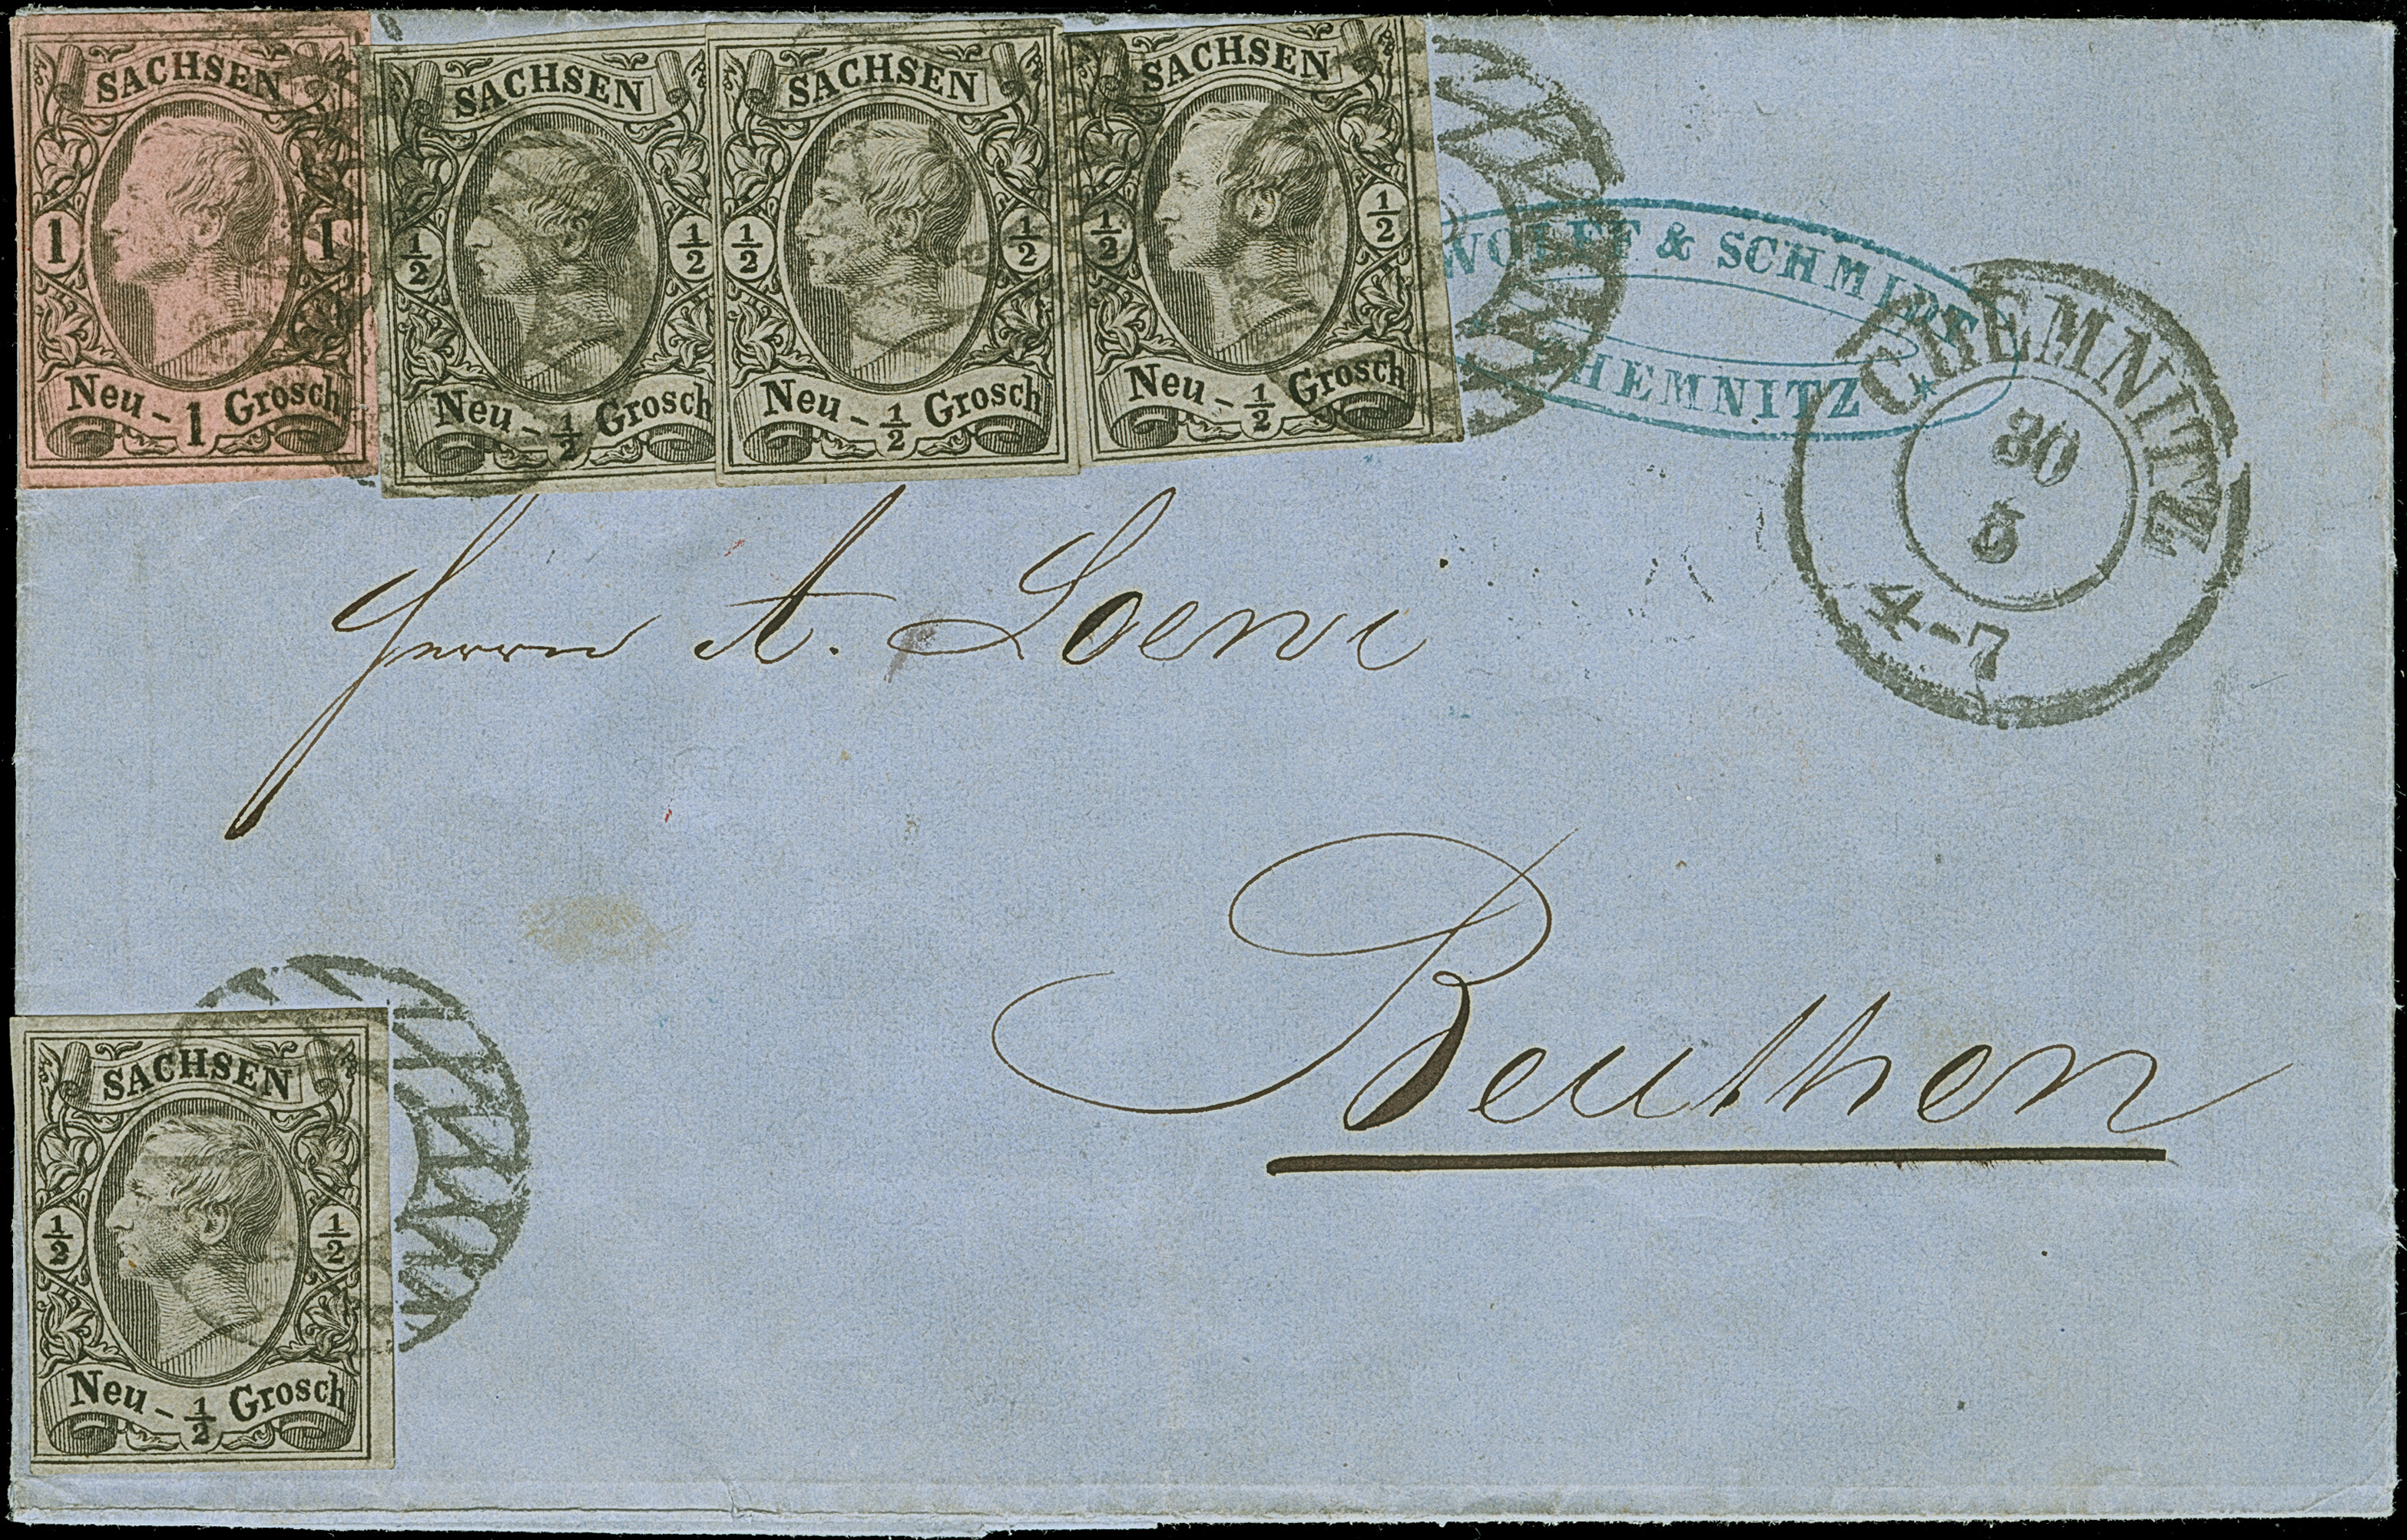 SACHSEN
1 1
Neu - 1 Grosch
SACHSEN
½ ½
Neu - ½ Grosch
SACHSEN
½ ½
Neu - ½ Grosch
SACHSEN
½ ½
Neu - ½ Grosch
WOLFF & SCHMIDT
HEMNITZ *
CHEMNITZ
30
5
4-7
Herrn A. Loewi
Beuthen
SACHSEN
½ ½
Neu - ½ Grosch